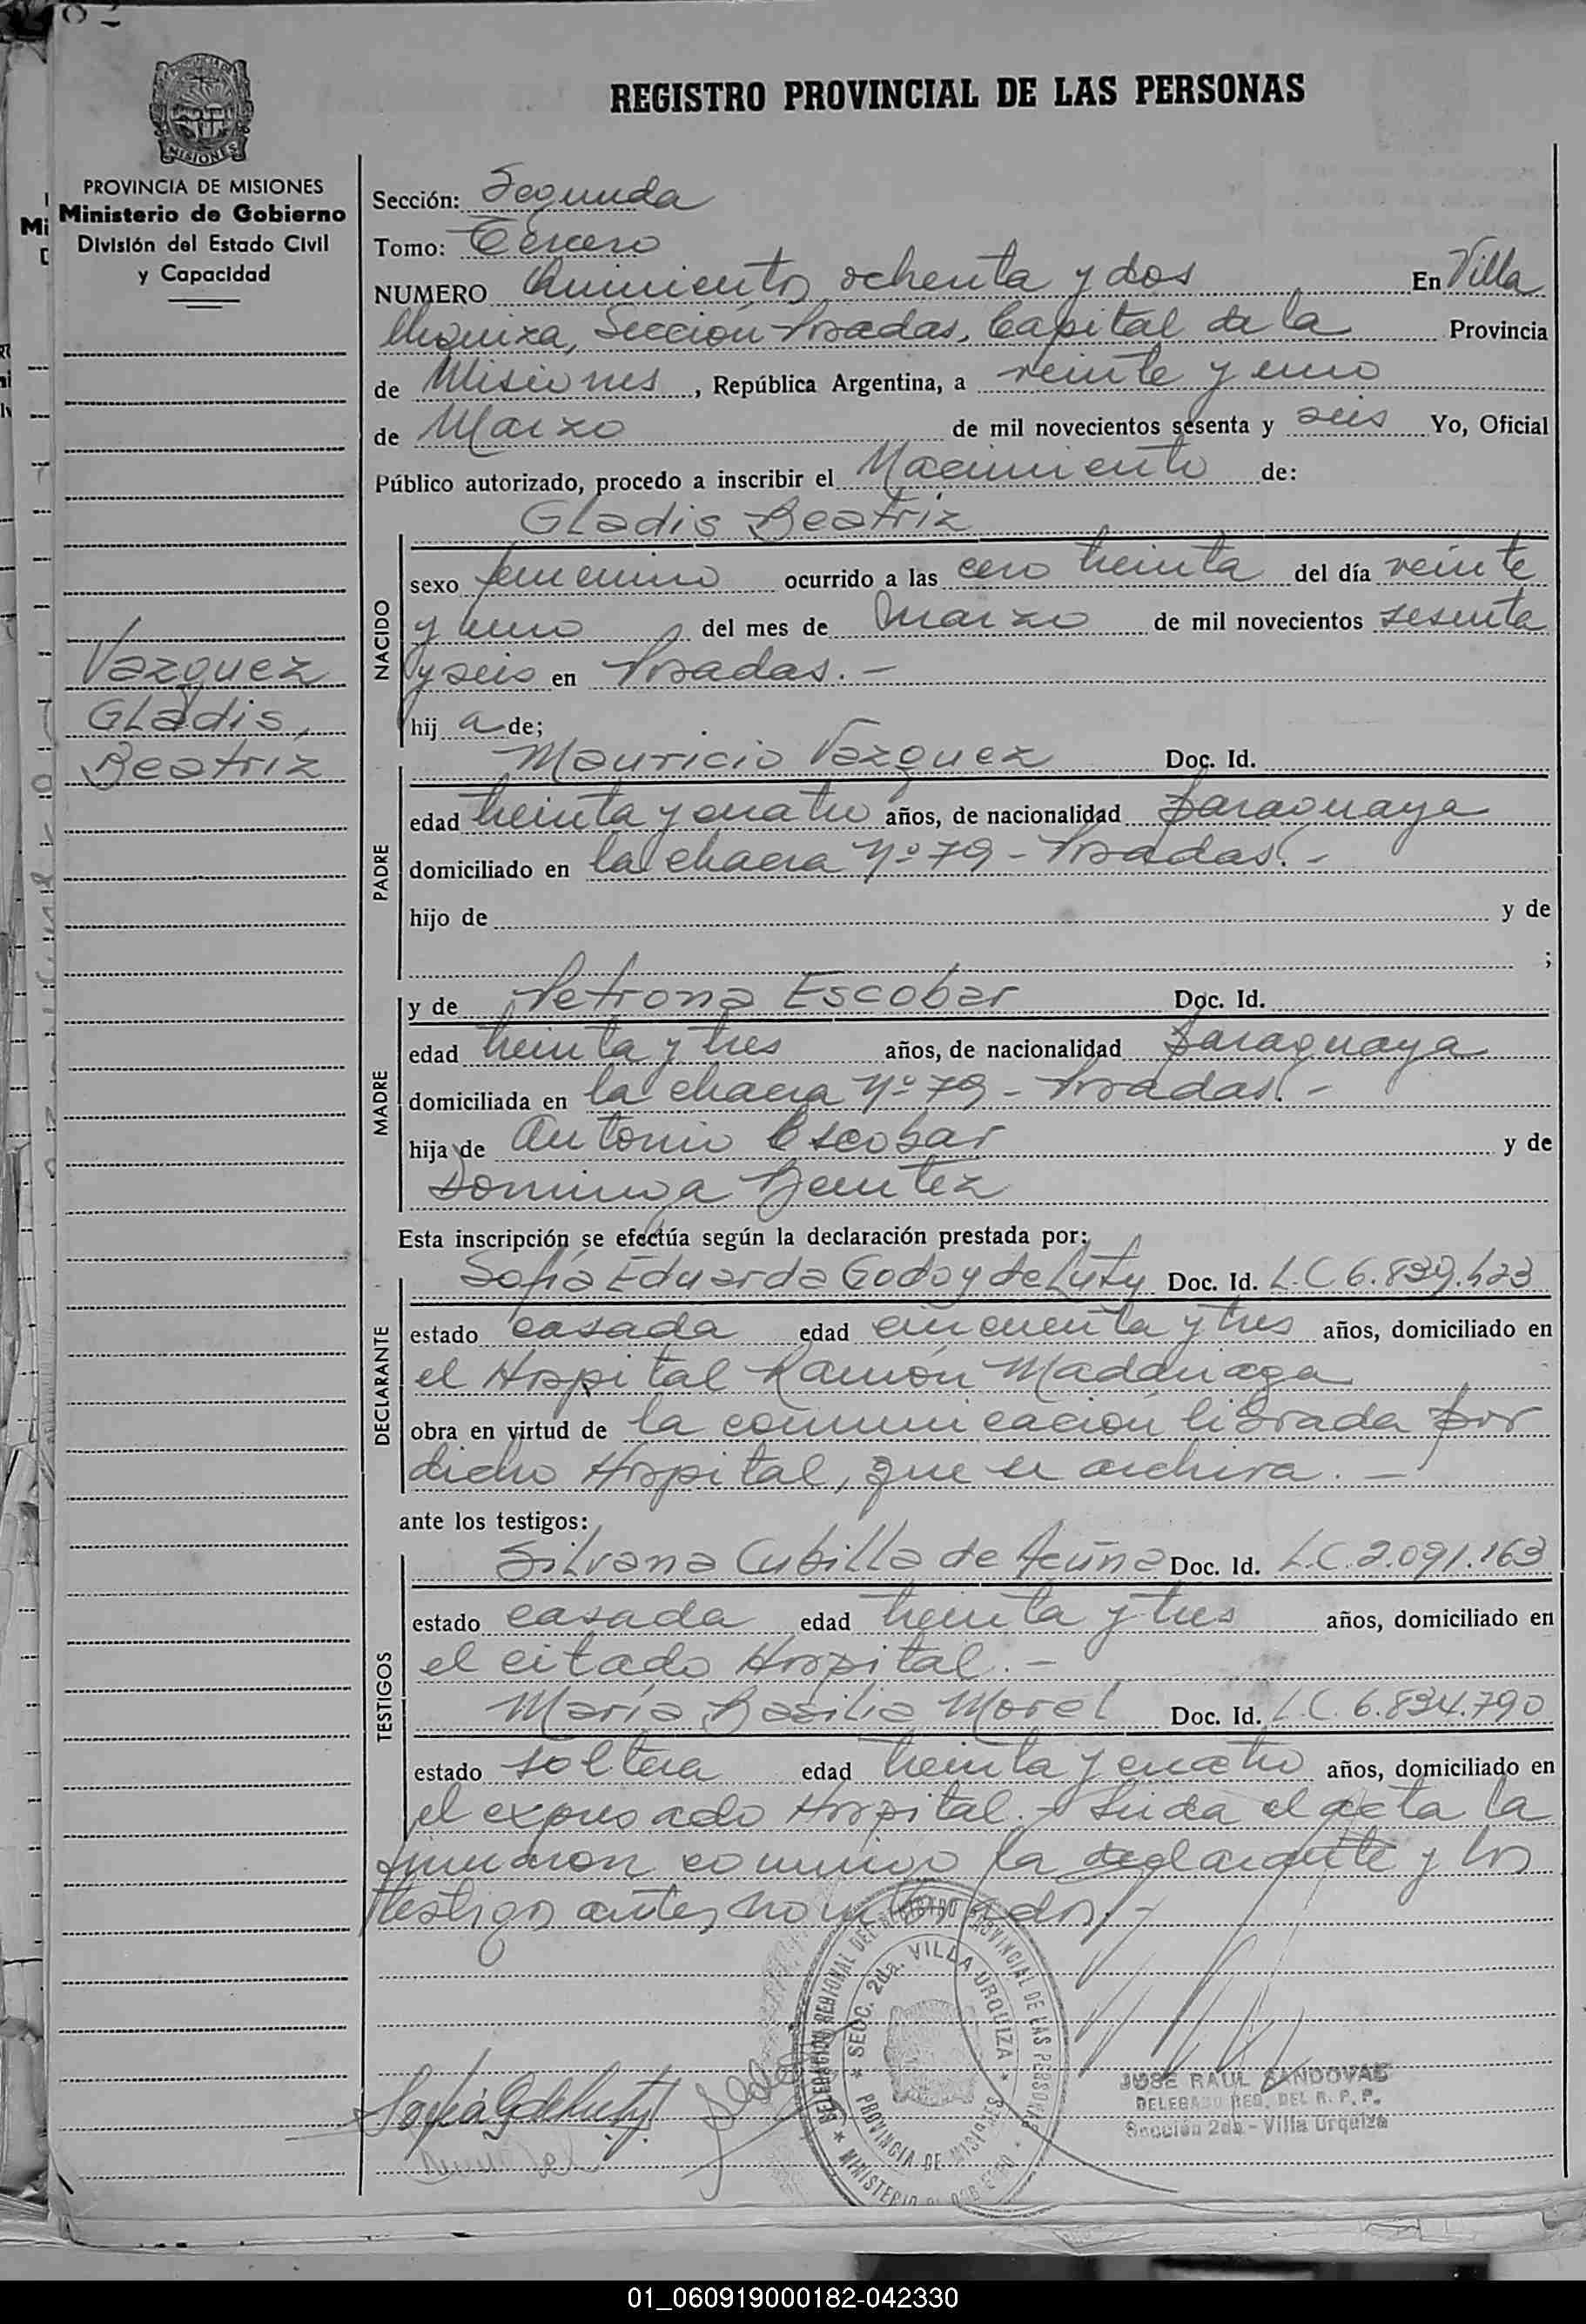 REGISTRO PROVINCIAL DE LAS PERSONAS
MISIONES
PROVINCIA DE MISIONES
Ministerio de Gobierno
División del Estado Civil
y Capacidad
Vazquez
Gladis,
Beatriz
Sección: Segunda
Tomo: Tercero
NUMERO Quinientos ochenta y dos En Villa
Urquiza, Sección Posadas, Capital de la Provincia
de Misiones, República Argentina, a veinte y uno
de Marzo de mil novecientos sesenta y seis Yo, Oficial
Público autorizado, procedo a inscribir el Nacimiento de:
NACIDO
Gladis Beatriz
sexo femenino ocurrido a las cero treinta del día veinte
y uno del mes de Marzo de mil novecientos sesenta
y seis en Posadas.-
hij a de;
PADRE
Mauricio Vazquez Doc. Id.
edad treinta y cuatro años, de nacionalidad paraguaya
domiciliado en la chacra Nº 79 - Posadas.-
hijo de y de
;
MADRE
y de Petrona Escobar Doc. Id.
edad treinta y tres años, de nacionalidad paraguaya
domiciliada en la chacra Nº 79 - Posadas.-
hija de Antonio Escobar y de
Dominga Benitez
Esta inscripción se efectúa según la declaración prestada por:
DECLARANTE
Sofía Eduarda Godoy de Doc. Id. L.C 6.839.423
estado casada edad cincuenta y tres años, domiciliado en
el Hospital Ramón Madariaga
obra en virtud de la comunicación librada por
dicho Hospital, que se archiva.-
ante los testigos:
TESTIGOS
Silvana Cubilla de Acuña Doc. Id. L.C. 2.091.163
estado casada edad treinta y tres años, domiciliado en
el citado Hospital.-
María Basilia Morel Doc. Id. L.C. 6.834.790
estado soltera edad treinta y cuatro años, domiciliado en
el expresado Hospital.- Leida el acta la
firmaron conmigo la declarante y los
testigos antes nombrados.-
DELEGACION REGIONAL DEL REGISTRO PROVINCIAL DE LAS PERSONAS
SECC. 2da. VILLA URQUIZA
PROVINCIA DE MISIONES
MINISTERIO DE GOBIERNO
JOSE RAUL SANDOVAL
DELEGADO REG. DEL R. P. P.
Sección 2da - Villa Urquiza
01_060919000182-042330